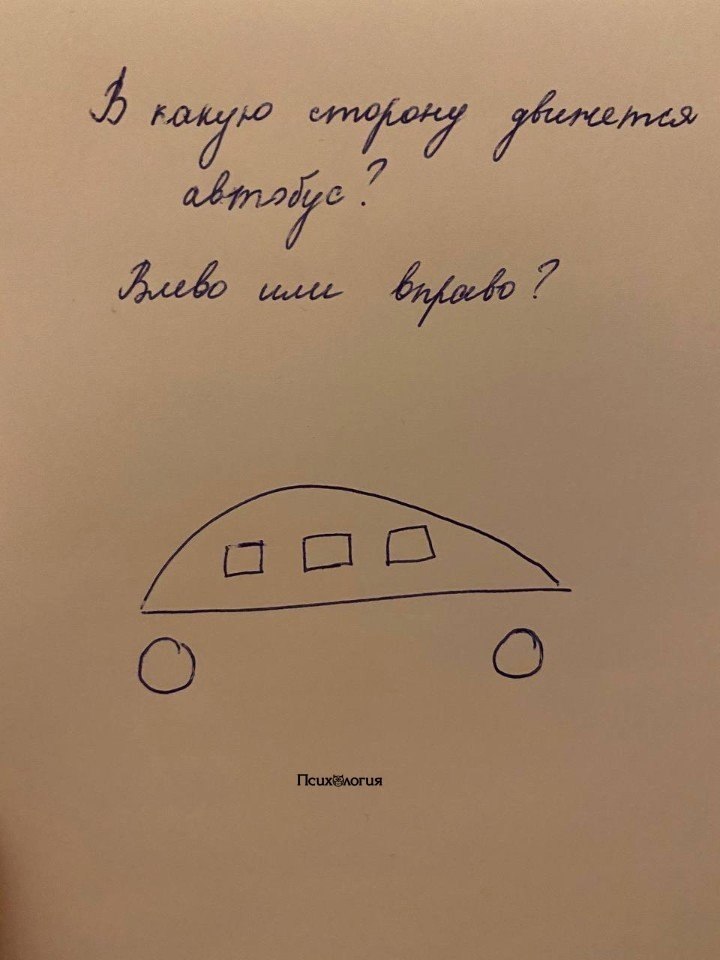 В какую сторону движется
автобус?
Влево или вправо?
Психология